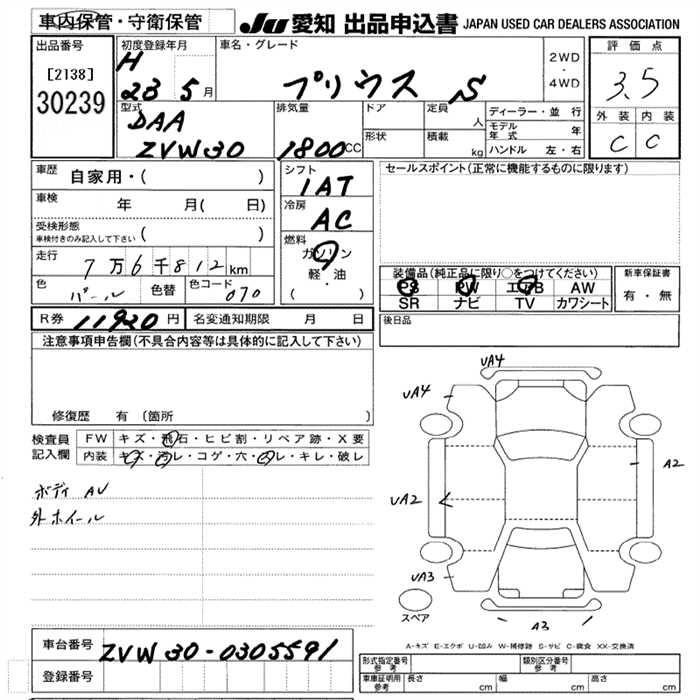 車内保管・守衛保管
JU 愛知 出品申込書 JAPAN USED CAR DEALERS ASSOCIATION
出品番号
[2138]
30239
初度登録年月
H
23 5月
車名・グレード
プリウス S
2WD
・
4WD
評価点
3.5
外装 内装
C C
型式
DAA
ZVW30
排気量
1800CC
ドア
形状
定員
人
積載
kg
ディーラー・並行
モデル年式 年
ハンドル 左・右
車歴
自家用・( )
車検
年 月( 日)
受検形態
車検付きのみ記入して下さい ( )
走行
7万6千812km
色
パール
色替
色コード
070
シフト
IAT
冷房
AC
燃料
ガソリン
軽・油
( )
セールスポイント(正常に機能するものに限ります)
装備品(純正品に限り○をつけてください)
PS PW エアB AW
SR ナビ TV カワシート
新車保証書
有・無
R券 11920円
名変通知期限 月 日
後日品
注意事項申告欄(不具合内容等は具体的に記入して下さい)
修復歴 有 (箇所 )
検査員
記入欄
FW キズ・飛石・ヒビ割・リペア跡・X要
内装 キズ・汚レ・コゲ・穴・スレ・キレ・破レ
ボディ AU
外ホイール
UA4
UA4
A2
UA2
UA3
A3
スペア
A-キズ E-エクボ U-凹み W-補修跡 S-サビ C-腐食 XX-交換済
車台番号
ZVW30-0305591
登録番号
形式指定番号
参考
類別区分番号
参考
車庫証明用
参考
長さ cm
幅 cm
高さ cm